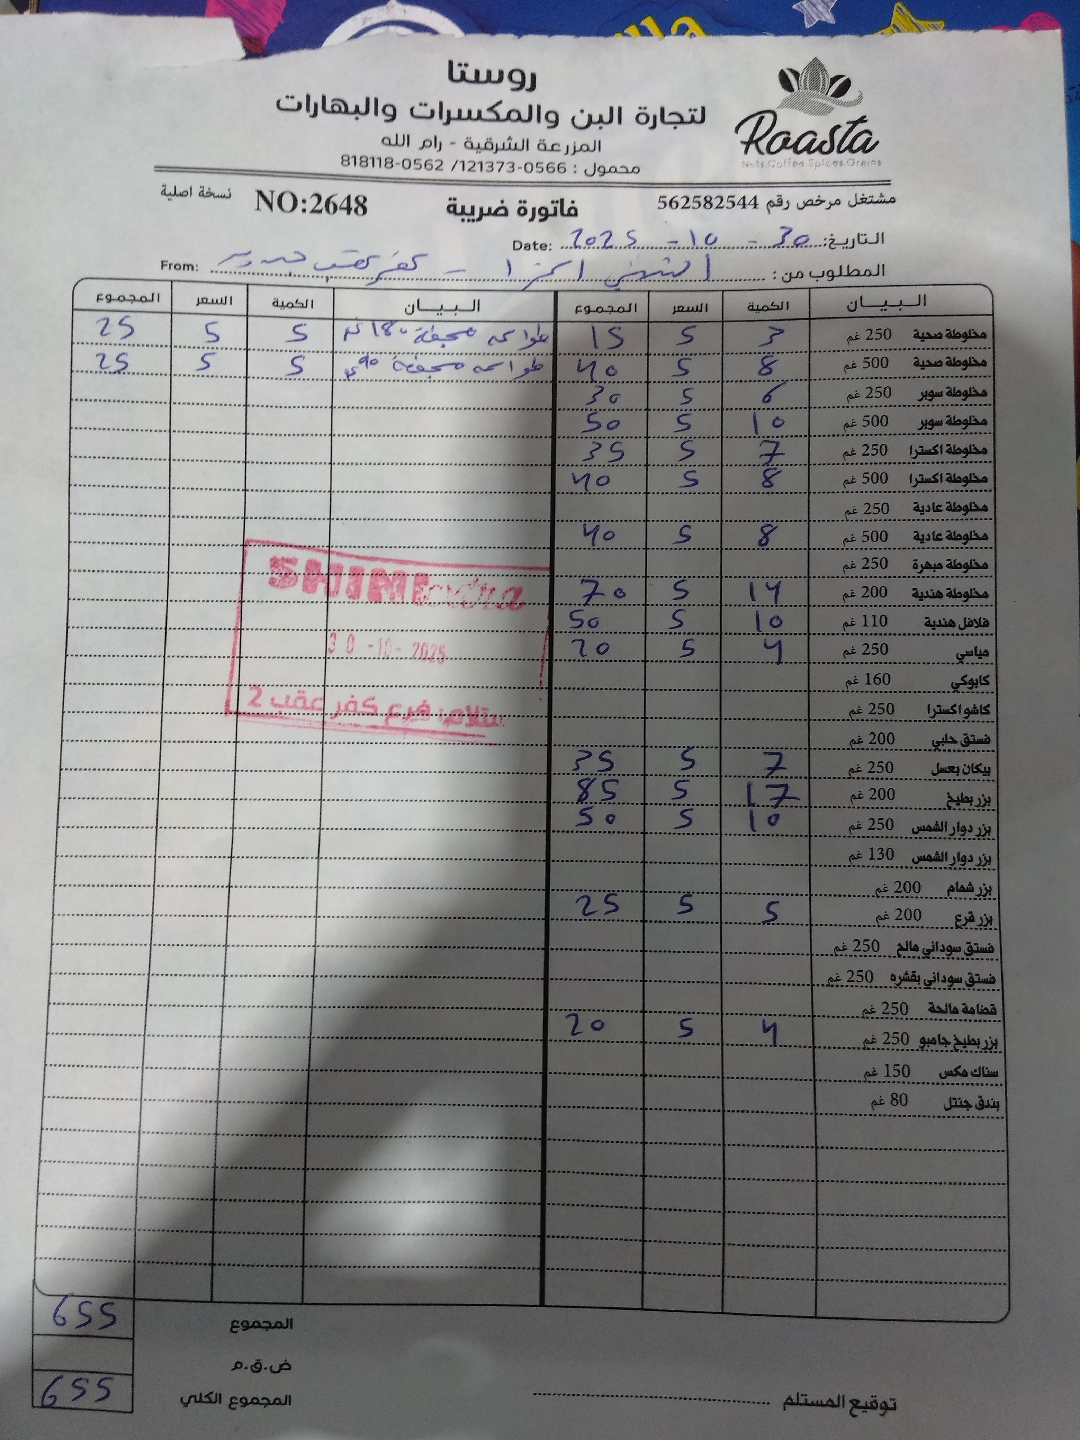 روستا
لتجارة البن والمكسرات والبهارات
المزرعة الشرقية - رام الله
محمول : 0566-121373/ 0562-818118
Roasta
Nuts.Coffee.Spices.Grains
مشتغل مرخص رقم 562582544 فاتورة ضريبة NO:2648 نسخة اصلية
التاريخ: 30 - 10 - 2025 Date:
المطلوب من : الشني اكسترا - كفر عقب From:
البيـــان الكمية السعر المجموع البيـــان الكمية السعر المجموع
مخلوطة صحية 250 غم 3 5 15 محمفة 180 غم 5 5 25
مخلوطة صحية 500 غم 8 5 40 محمفة 90 غم 5 5 25
مخلوطة سوبر 250 غم 6 5 30
مخلوطة سوبر 500 غم 10 5 50
مخلوطة اكسترا 250 غم 7 5 35
مخلوطة اكسترا 500 غم 8 5 40
مخلوطة عادية 250 غم
مخلوطة عادية 500 غم 8 5 40
مخلوطة مبهرة 250 غم
مخلوطة هندية 200 غم 14 5 70
فلافل هندية 110 غم 10 5 50
مياسي 250 غم 4 5 20
كابوكي 160 غم
كاشو اكسترا 250 غم
فستق حلبي 200 غم
بيكان بعسل 250 غم 7 5 35
بزر بطيخ 200 غم 17 5 85
بزر دوار الشمس 250 غم 10 5 50
بزر دوار الشمس 130 غم
بزر شمام 200 غم
بزر قرع 200 غم 5 5 25
فستق سوداني مالح 250 غم
فستق سوداني بقشره 250 غم
قضامة مالحة 250 غم
بزر بطيخ جامبو 250 غم 4 5 20
سناك مكس 150 غم
بندق جنتل 80 غم
SHINI extra
30 -10- 2025
ستلام: فرع كفر عقب 2
المجموع 655
ض.ق.م
المجموع الكلي 655
توقيع المستلم